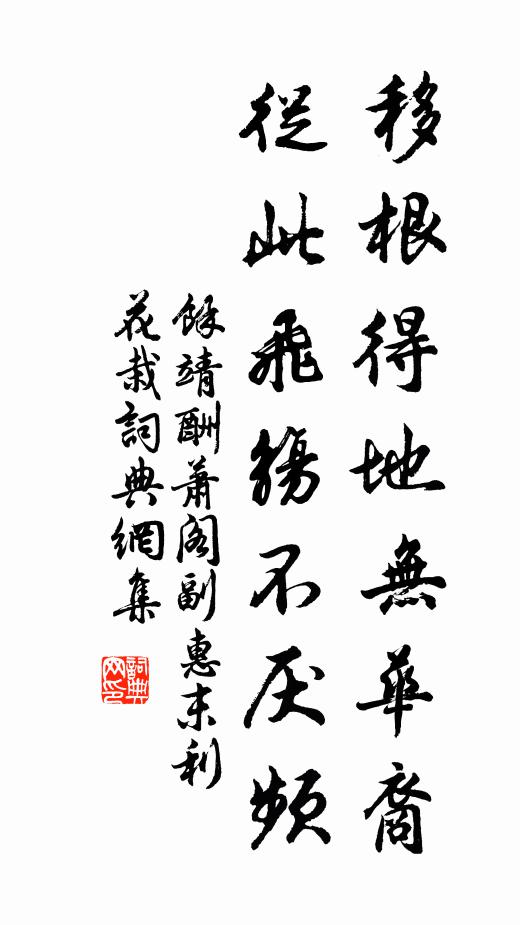 移根得地無華裔
從此飛觴不厌頻
餘靖酬蕭阁副惠末利
花栽詞典網集
詞典网印